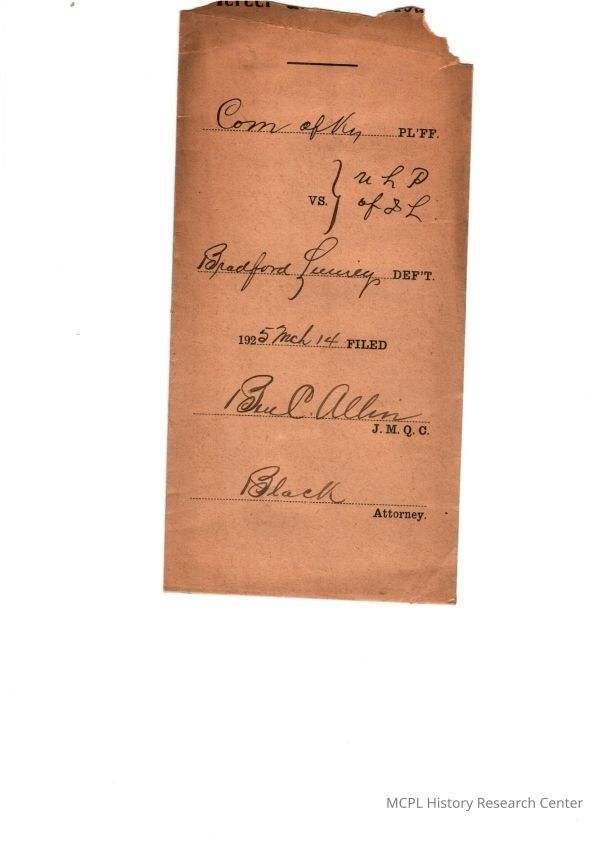 Com of Ky PL'FF.
VS. } u L P
of I L
Bradford DEF'T.
1925 Mch 14 FILED
Ben C. Allin
J. M. Q. C.
Black
Attorney.
MCPL History Research Center